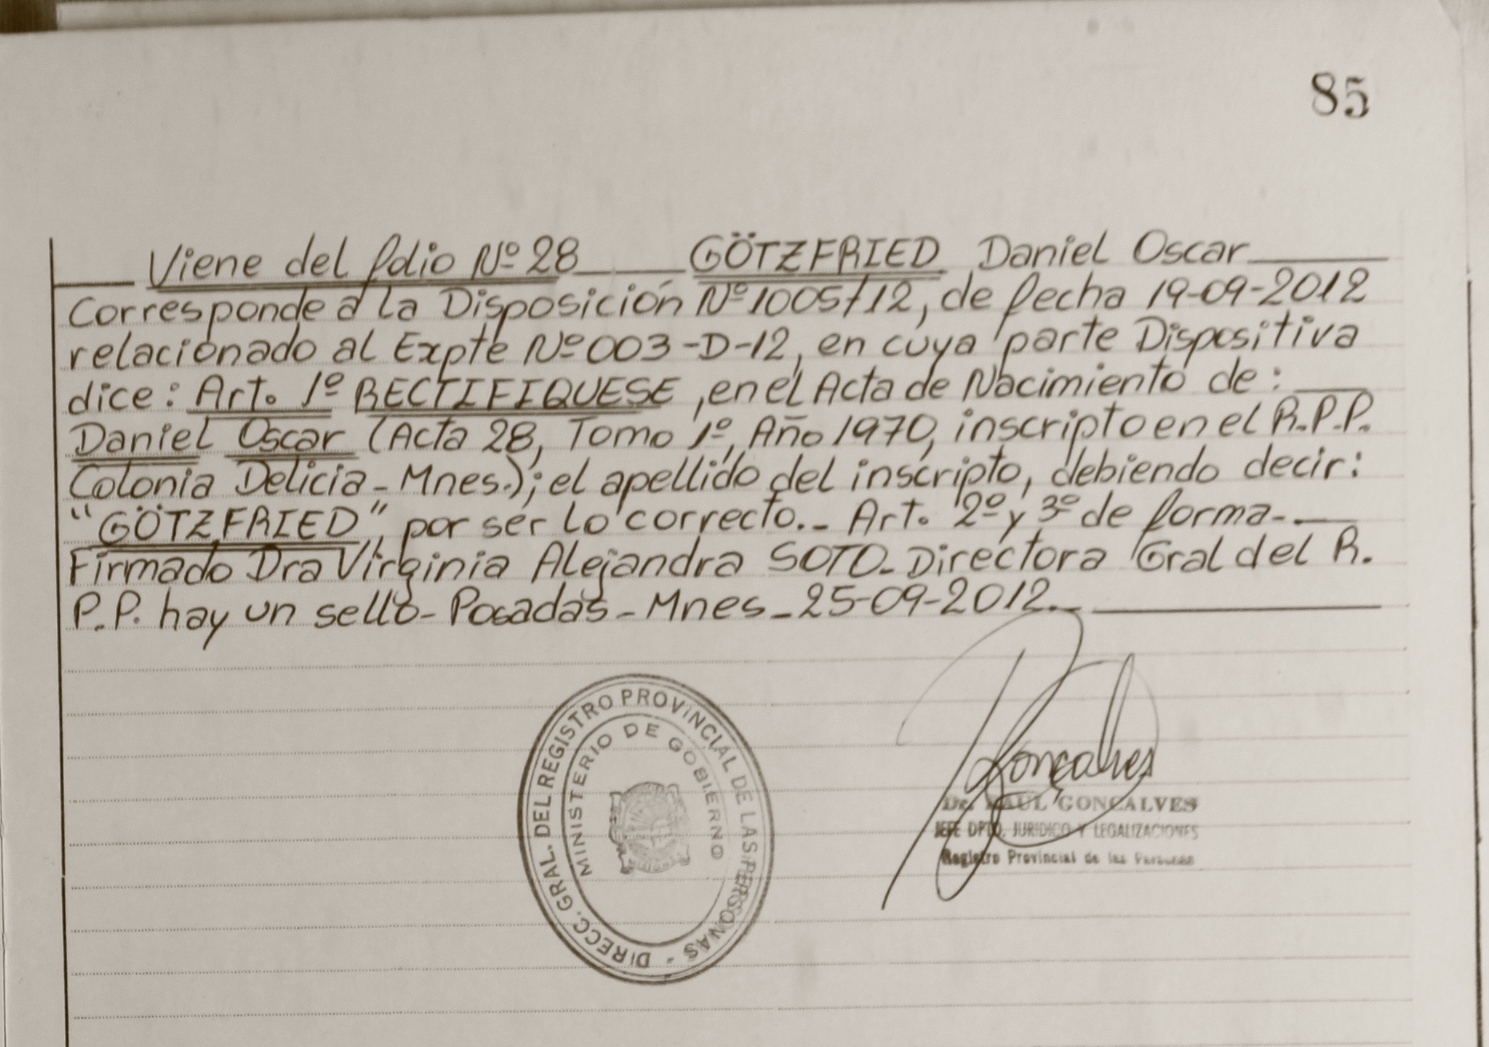 85
Viene del folio Nº 28 GÖTZFRIED Daniel Oscar
Corresponde a la Disposición Nº 1005/12, de fecha 19-09-2012
relacionado al Expte Nº 003-D-12, en cuya parte Dispositiva
dice: Art. 1º RECTIFIQUESE, en el Acta de Nacimiento de:
Daniel Oscar (Acta 28, Tomo 1º, Año 1970, inscripto en el R.P.P.
Colonia Delicia - Mnes.); el apellido del inscripto, debiendo decir:
"GÖTZFRIED", por ser lo correcto.- Art. 2º y 3º de forma-.
Firmado Dra Virginia Alejandra SOTO- Directora Gral del R.
P.P. hay un sello- Posadas - Mnes - 25-09-2012.-
DIRECC. GRAL. DEL REGISTRO PROVINCIAL DE LAS PERSONAS -
MINISTERIO DE GOBIERNO
Goncalves
Dr. RAUL GONCALVES
JEFE DPTO. JURIDICO Y LEGALIZACIONES
Registro Provincial de las Personas